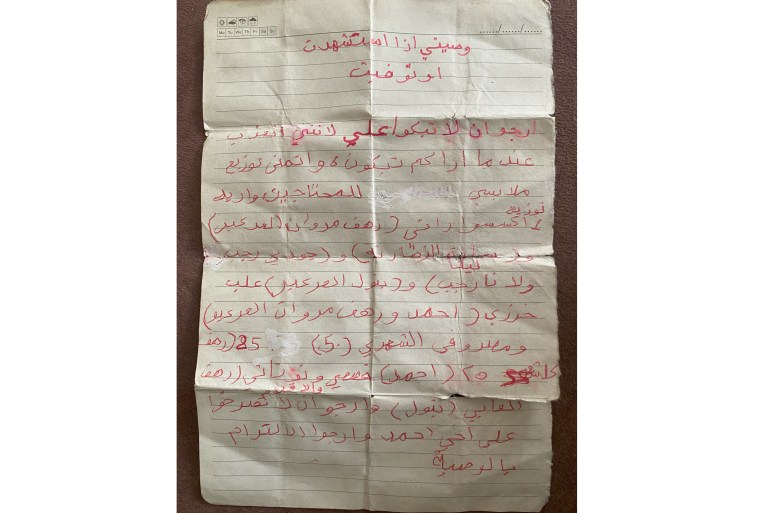 Mo Tu We Th Fr Sa Su
....../....../......
وصيتي إذا استشهدت
او توفيت
ارجو ان لا تبكوا علي لانني اتعذب
عندما أراكم تبكون و اتمنى توزيع
ملابسي للمحتاجين واريد
توزيع
اكسسواراتي (رهف مروان العرعير)
و ( و (جودي رجب
لينا
ولانا رجب) و (بتول العرعير) علب
خرزي (احمد و رهف مروان العرعير)
ومصروفي الشهري (50) 25 (رهف
25 (احمد) قصصي و (رهف
العابي (بتول) وارجو ان لا تصرخوا
على أخي احمد وارجوا الالتزام
بالوصية